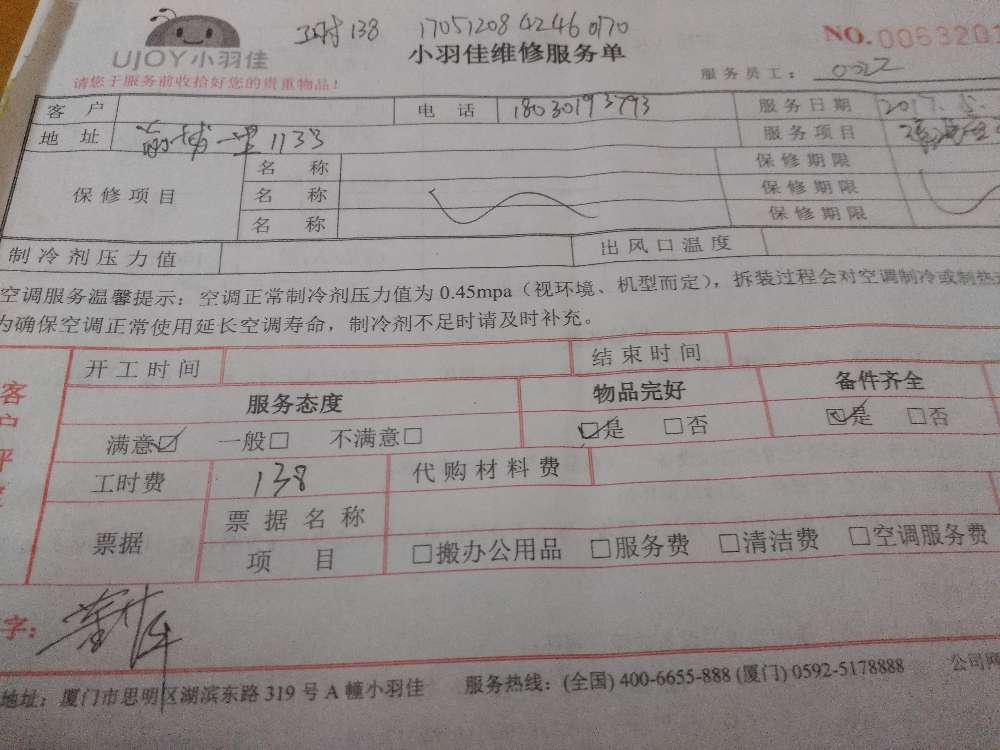 工时138 1705120842460170
UJOY小羽佳
小羽佳维修服务单
NO.0063201
请您于服务前收拾好您的贵重物品!
服务员工:
客户 电话 18030193793 服务日期 2017.5.
地址 一里1133 服务项目
保修项目 名称 保修期限
名称 保修期限
名称 保修期限
制冷剂压力值 出风口温度
空调服务温馨提示:空调正常制冷剂压力值为0.45mpa(视环境、机型而定),拆装过程会对空调制冷或制热
为确保空调正常使用延长空调寿命,制冷剂不足时请及时补充。
客户评
开工时间 结束时间
服务态度 物品完好 备件齐全
满意☑ 一般□ 不满意□ ☑是 □否 ☑是 □否
工时费 138 代购材料费
票据 票据名称
项目 □搬办公用品 □服务费 □清洁费 □空调服务费
字:
地址:厦门市思明区湖滨东路319号A幢小羽佳 服务热线:(全国) 400-6655-888 (厦门) 0592-5178888 公司网